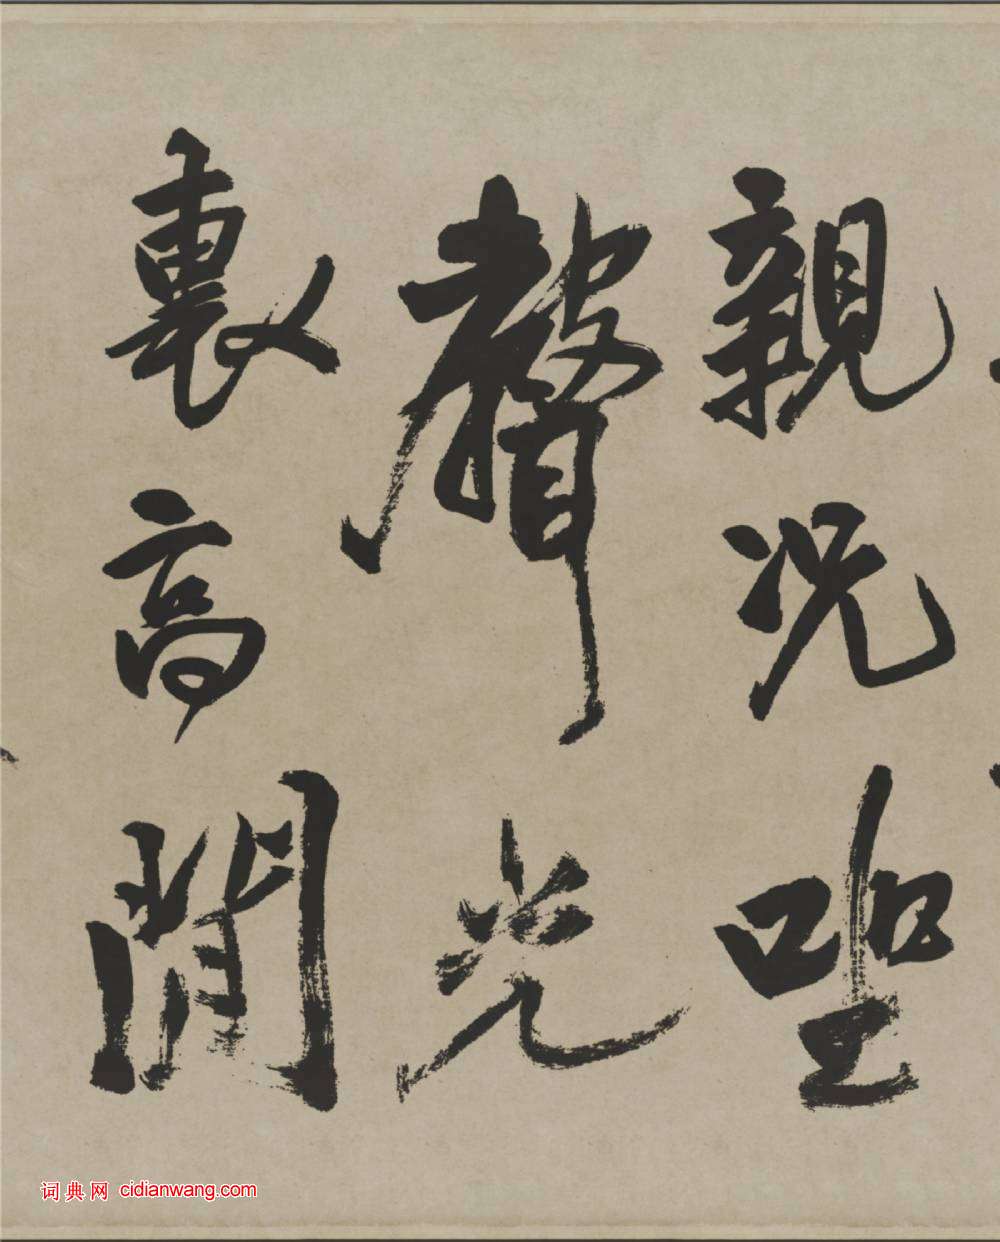 親况坐
聲光
裏高閒
词典网 cidianwang.com